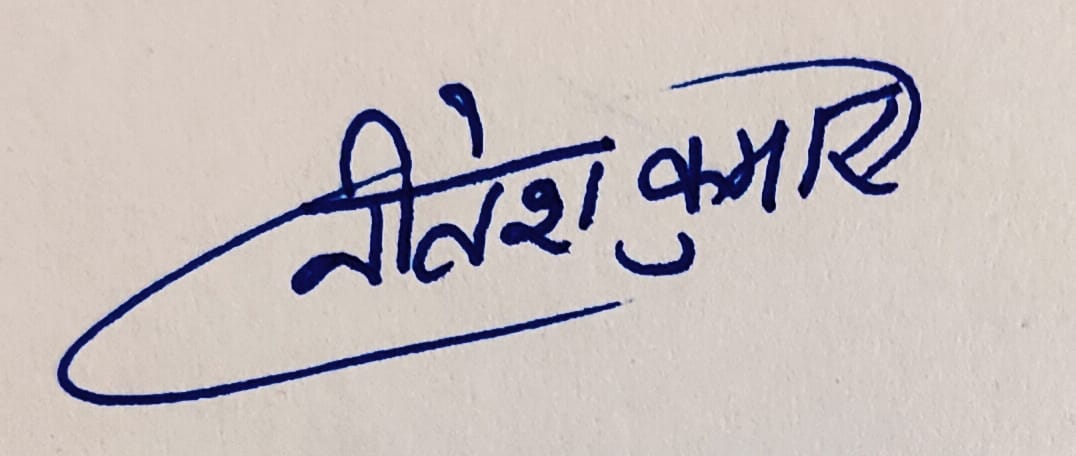 नीतेश कुमार